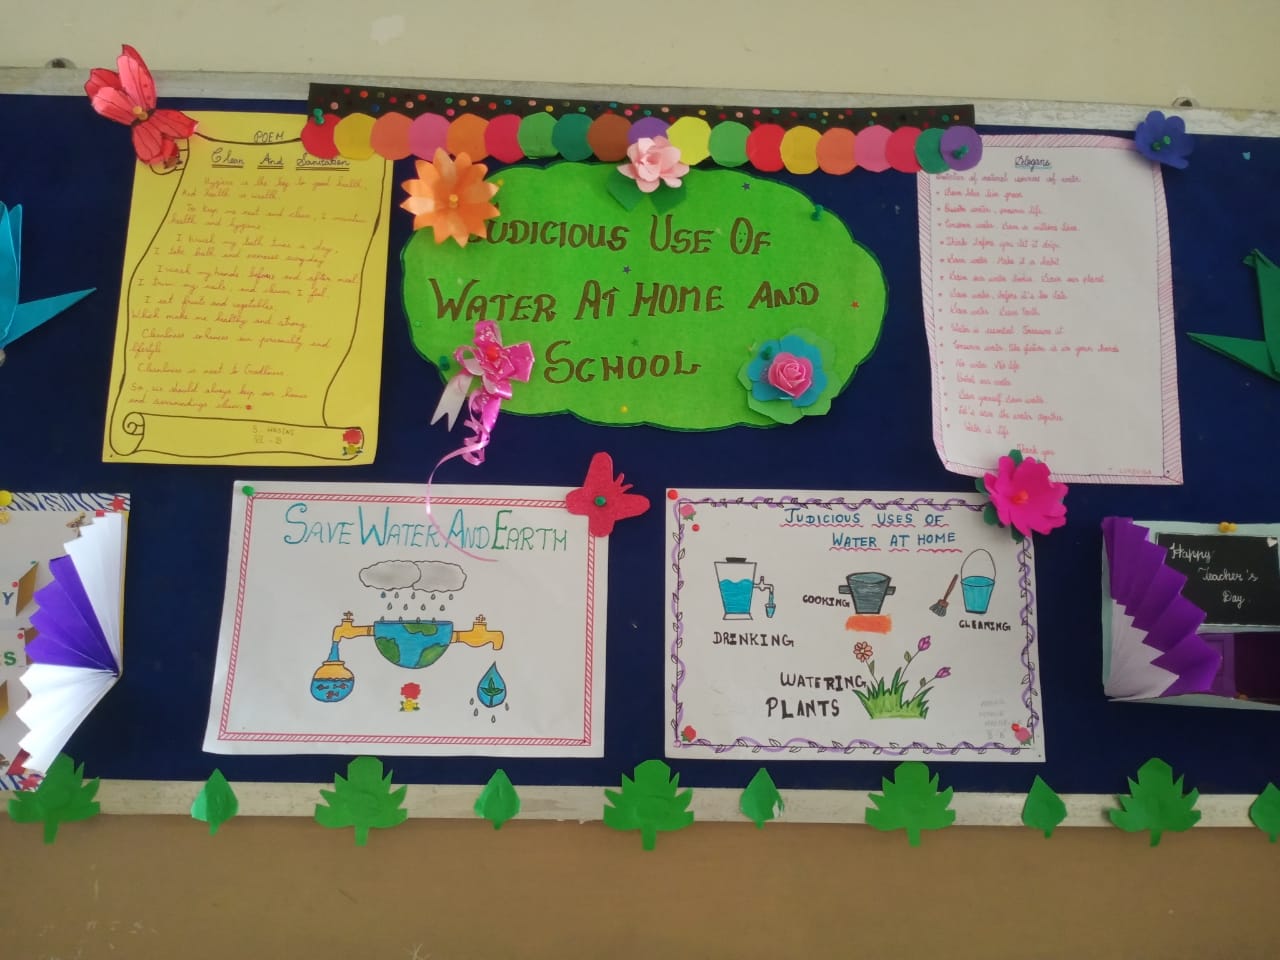 POEM
Clean And Sanitation
Hygine is the key to good health,
And health is wealth
To keep me neat and clean, I maintain
health and hygine.
I brush my teeth twice a day,
I take bath and exercise everyday
I wash my hands before and after meal,
I trim my nails, and clean I feel.
I eat fruits and vegetables,
Which make me healthy and strong
Cleanliness enhances our personality and
lifestyle
Cleanliness is next to Godliness
So, we should always keep our homes
and surroundings clean.
JUDICIOUS USE OF
WATER AT HOME AND
SCHOOL
Slogans
of natural sources of water.
Conserve water
Think before you let it drip.
Save water Make it a habit
Save water, before it's too late
Save water Save Earth
Water is essential Treasure it
Conserve water, the future is in your hands
No water No life
Let's save the water together
Water is life
Thank you
SAVE WATER AND EARTH
JUDICIOUS USES OF
WATER AT HOME
DRINKING
COOKING
CLEANING
WATERING
PLANTS
Happy
Teacher's
Day
Y
S